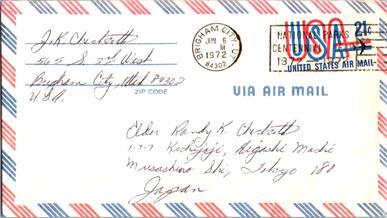 J.K. Chestnutt
565 S 2nd West
Brigham City, Utah 84302
U.S.A.
ZIP CODE
BRIGHAM CITY, UT
JUN 6
M
1972
84302
NATIONAL PARKS
CENTENNIAL
USA 21¢
UNITED STATES AIR MAIL
VIA AIR MAIL
Elder Randy K.
1-7-7 Kichijoji, Higashi Machi
Musashino Shi, Tokyo 180
Japan